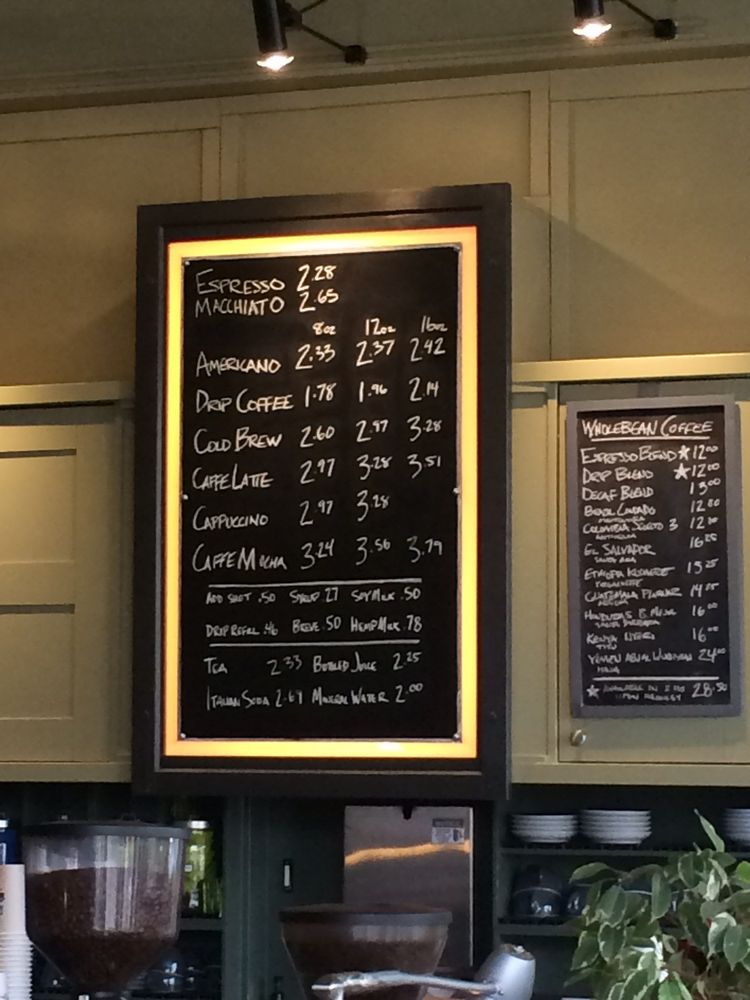 ESPRESSO 2.28
MACCHIATO 2.65
8oz 12oz 16oz
AMERICANO 2.33 2.37 2.42
DRIP COFFEE 1.78 1.96 2.14
COLD BREW 2.60 2.97 3.28
CAFFE LATTE 2.97 3.28 3.51
CAPPUCCINO 2.97 3.28
CAFFE MOCHA 3.24 3.56 3.79
ADD SHOT .50 SYRUP .27 SOY MILK .50
DRIP REFILL .46 BREVE .50 HEMP MILK .78
TEA 2.33 BOTTLED JUICE 2.25
ITALIAN SODA 2.69 MINERAL WATER 2.00
WHOLEBEAN COFFEE
ESPRESSO BLEND ★ 12.00
DRIP BLEND ★ 12.00
DECAF BLEND 13.00
BRAZIL
COLOMBIA
EL SALVADOR
ETHIOPIA
GUATEMALA
HONDURAS 16.00
KENYA NYERI 16.00
YEMEN
★ AVAILABLE IN 28.50